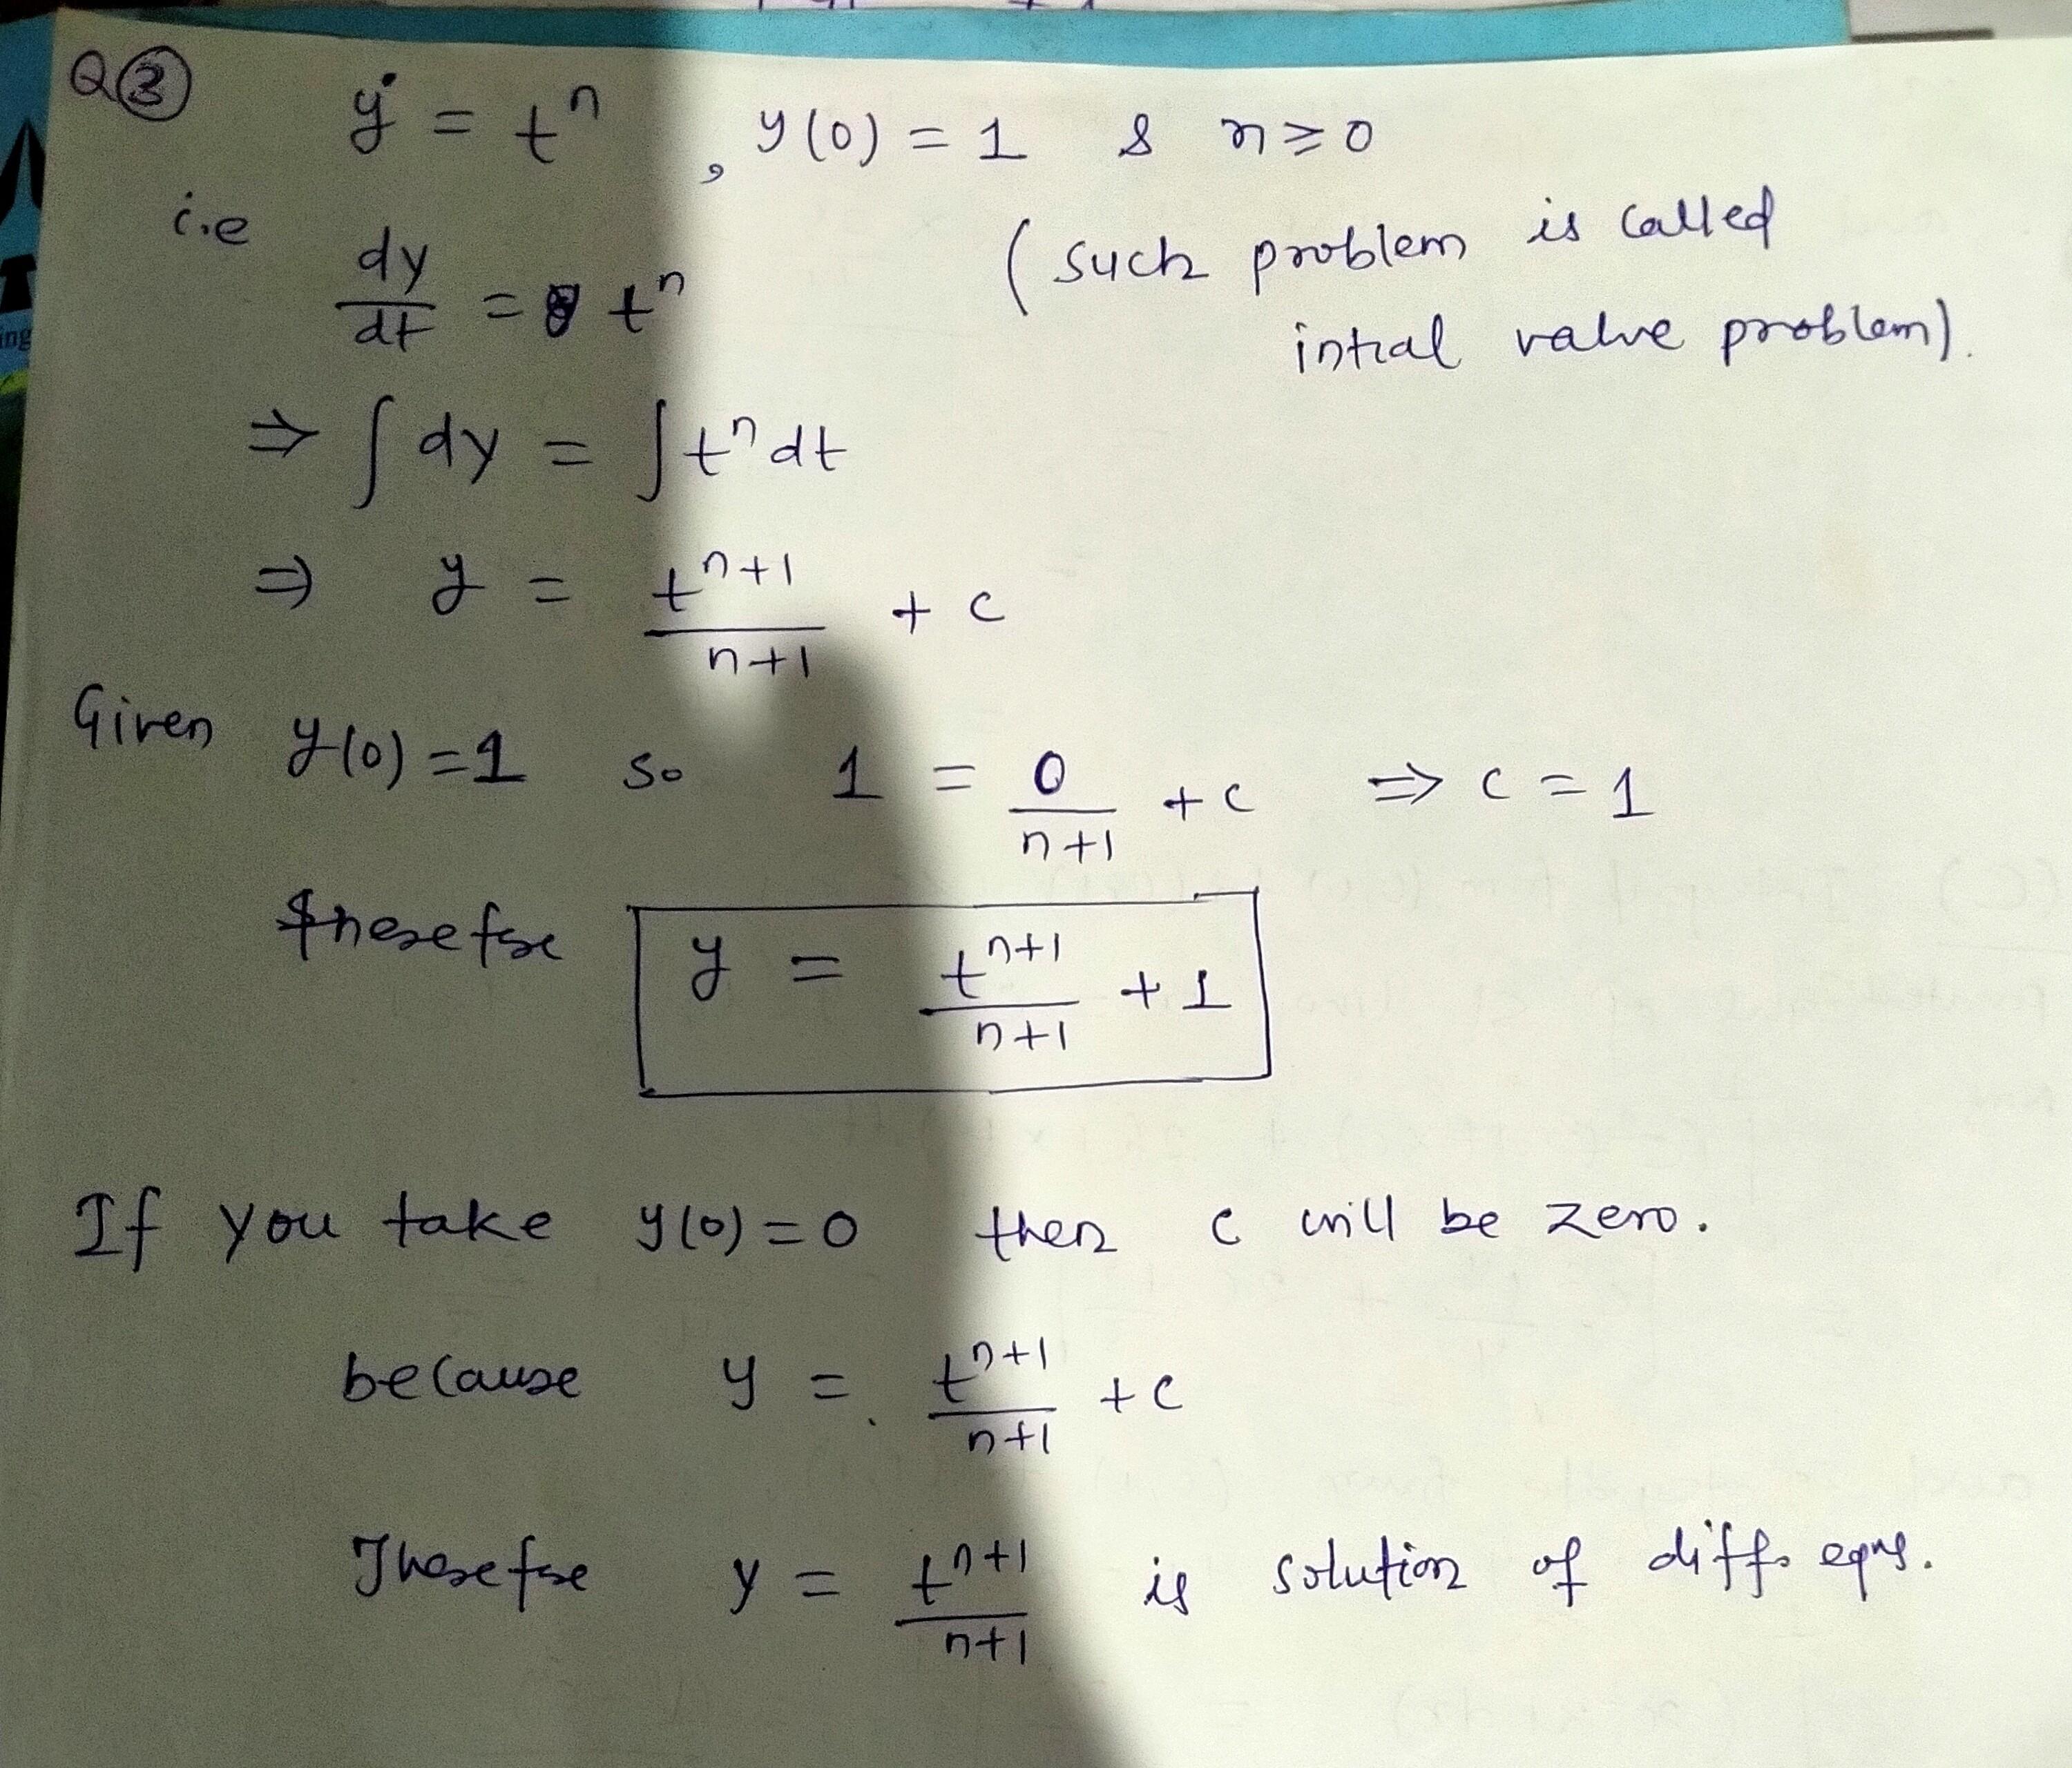 Q③ ẏ = tⁿ , y(0) = 1 & n ≥ 0
i.e dy/dt = tⁿ (such problem is called
intial value problem).
⇒ ∫ dy = ∫ tⁿ dt
⇒ y = tⁿ⁺¹/n+1 + c
Given y(0) = 1 so 1 = 0/n+1 + c ⇒ c = 1
therefore y = tⁿ⁺¹/n+1 + 1
If you take y(0) = 0 then c will be zero.
because y = tⁿ⁺¹/n+1 + c
Therefore y = tⁿ⁺¹/n+1 is solution of diff. eqns.
ing